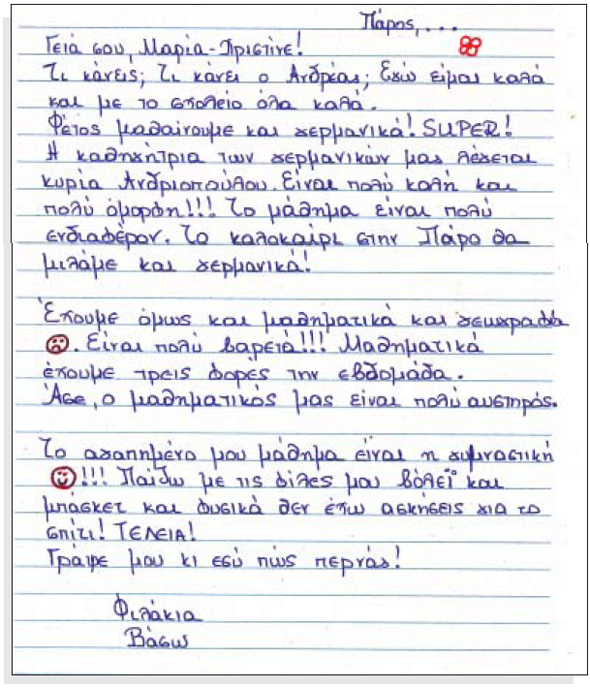 Πάρος,...
Γειά σου, Μαρία-Χριστίνε!
Τι κάνεις; Τι κάνει ο Ανδρέας; Εγώ είμαι καλά
και με το σχολείο όλα καλά.
Φέτος μαθαίνουμε και γερμανικά! SUPER!
Η καθηγήτρια των γερμανικών μας λέγεται
κυρία Ανδριοπούλου. Είναι πολύ καλή και
πολύ όμορφη!!! Το μάθημα είναι πολύ
ενδιαφέρον. Το καλοκαίρι στην Πάρο θα
μιλάμε και γερμανικά!
Έχουμε όμως και μαθηματικά και γεωγραφία
. Είναι πολύ βαρετά!!! Μαθηματικά
έχουμε τρεις φορές την εβδομάδα.
Άσε, ο μαθηματικός μας είναι πολύ αυστηρός.
Το αγαπημένο μου μάθημα είναι η γυμναστική
!!! Παίζω με τις φίλες μου βόλεϊ και
μπάσκετ και φυσικά δεν έχω ασκήσεις για το
σπίτι! ΤΕΛΕΙΑ!
Γράψε μου κι εσύ πώς περνάς!
Φιλάκια
Βάσω